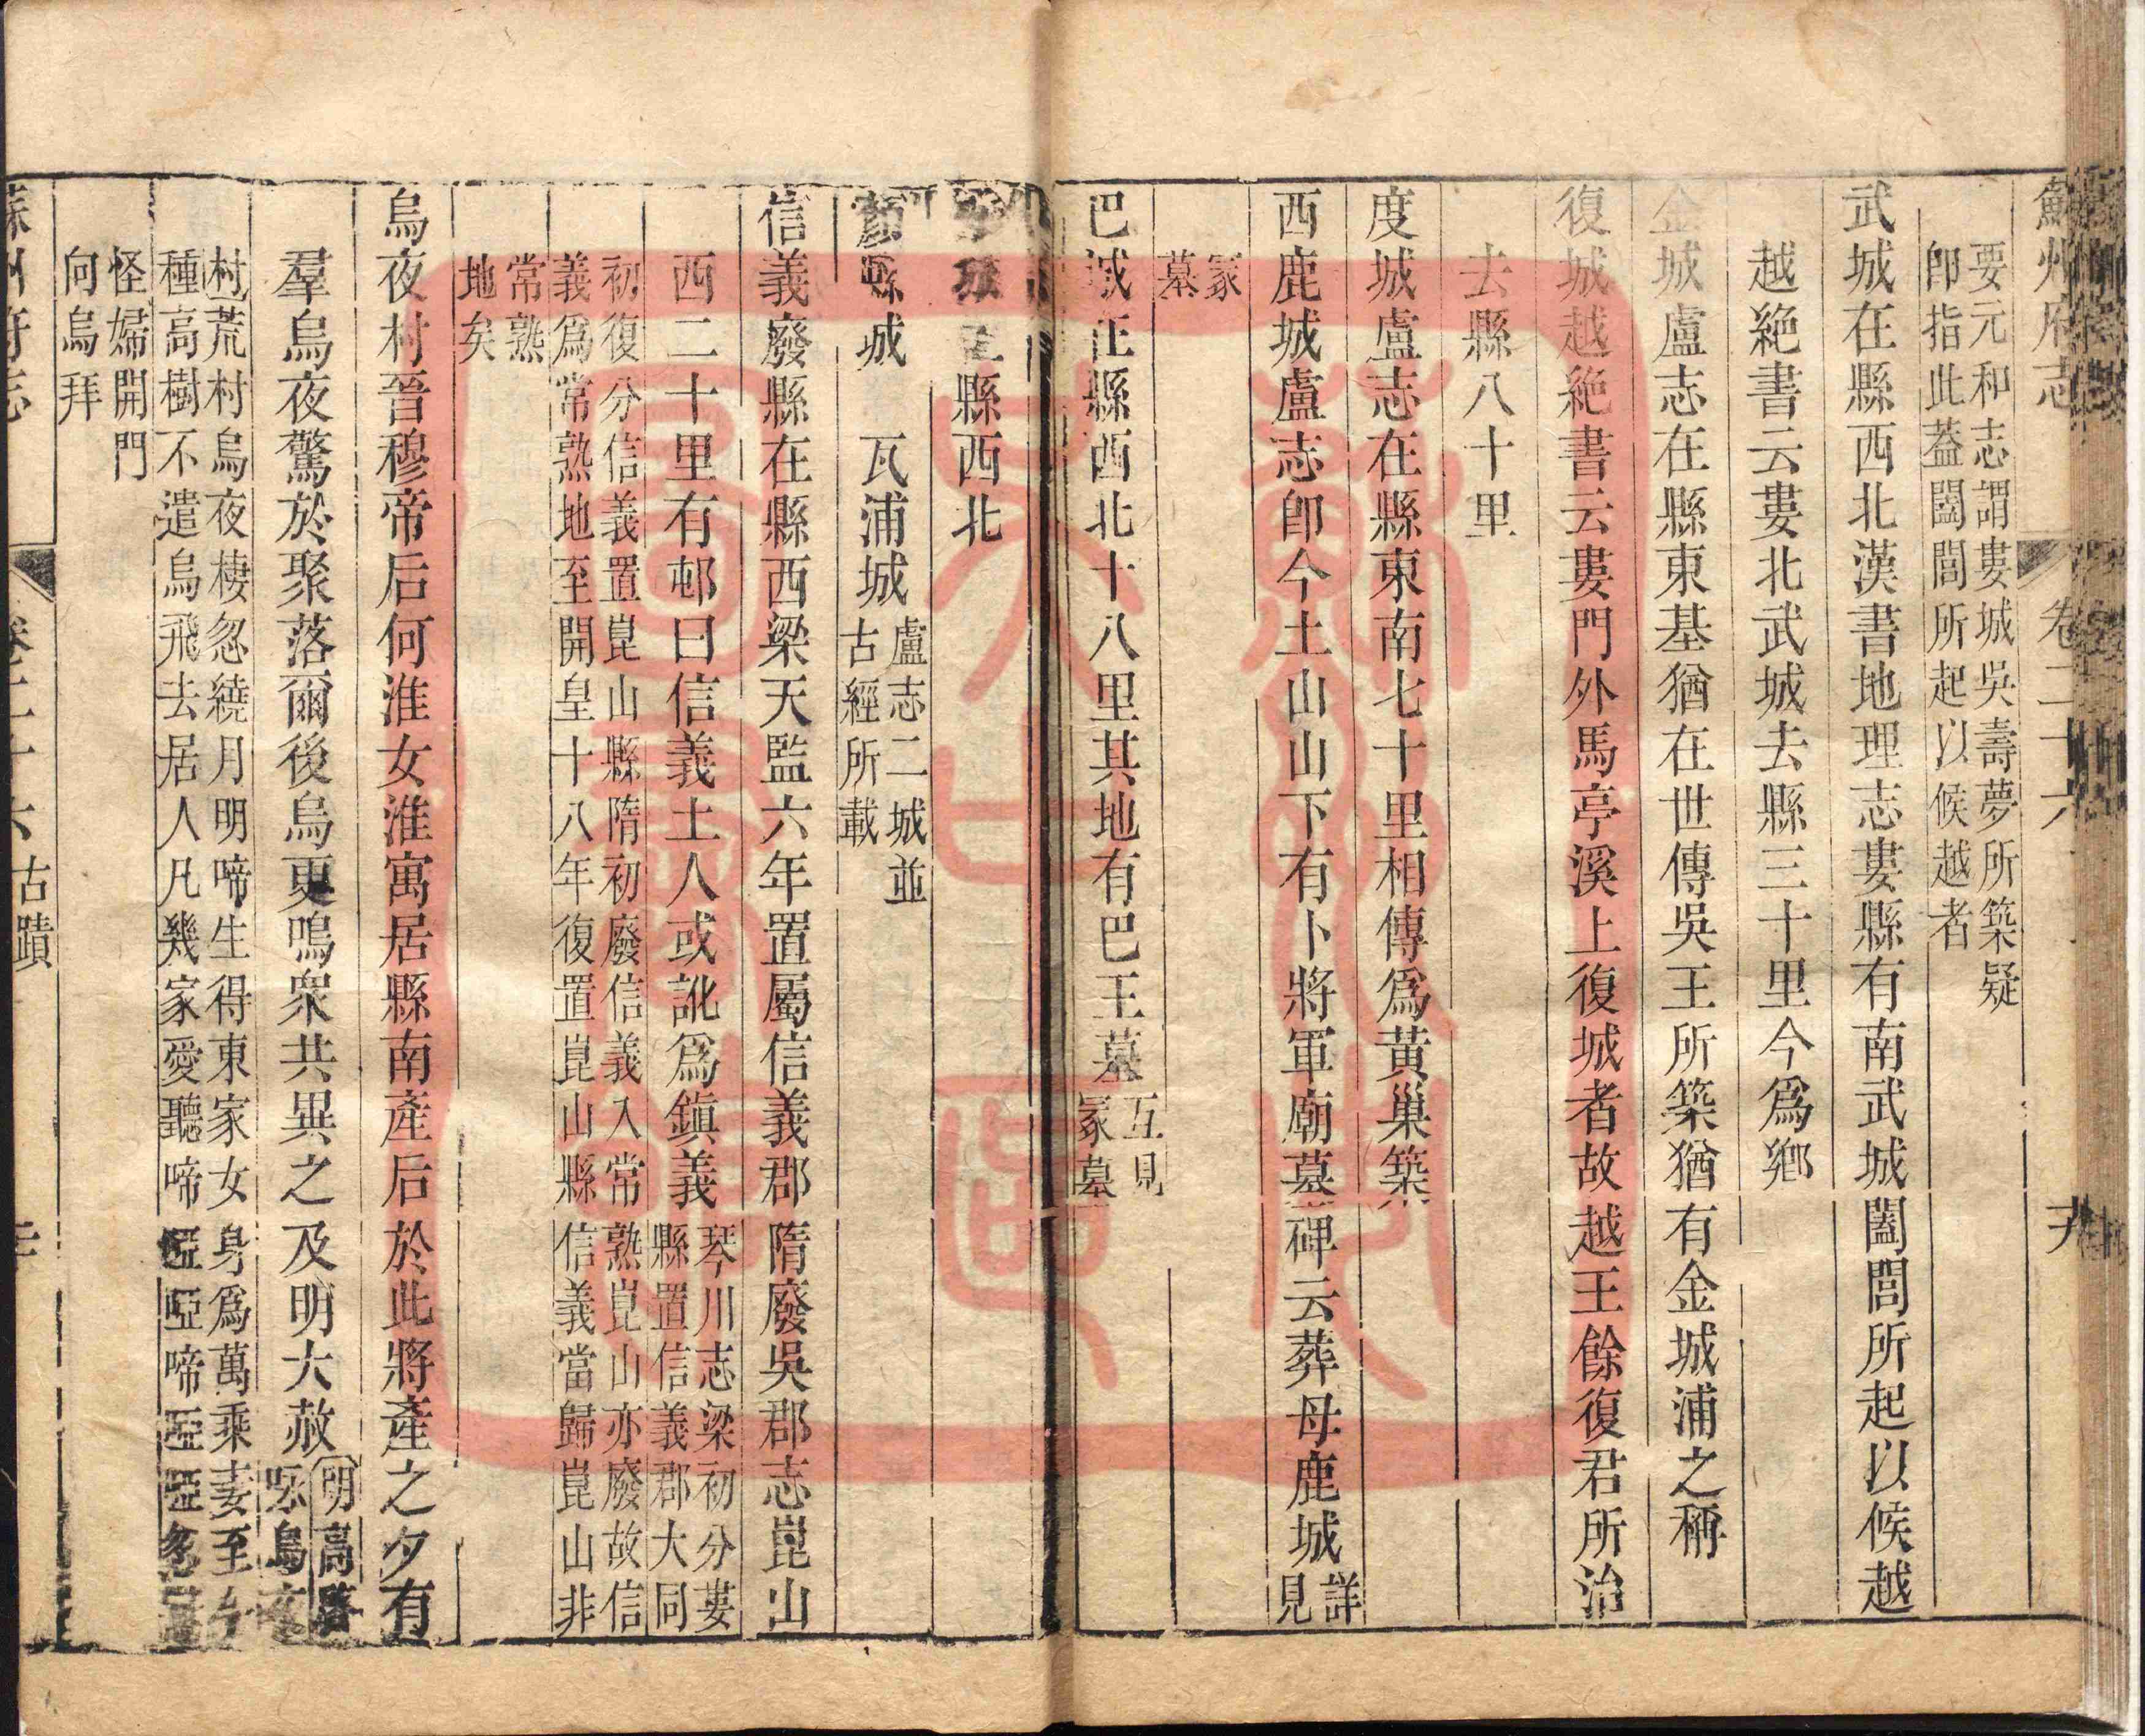 蘇州府志 卷二十六
要元和志謂婁城吳壽夢所築疑
卽指此葢闔閭所起以候越者
武城在縣西北漢書地理志婁縣有南武城闔閭所起以候越
越絶書云婁北武城去縣三十里今爲鄕
金城盧志在縣東基猶在世傳吳王所築猶有金城浦之稱
復城越絶書云婁門外馬亭溪上復城者故越王餘復君所治
去縣八十里
度城盧志在縣東南七十里相傳爲黃巢築
西鹿城盧志卽今土山山下有卜將軍廟墓碑云葬母鹿城詳見
冢墓
巴城在縣西北十八里其地有巴王墓互見冢墓
城在縣西北
縣城 瓦浦城盧志二城並
古經所載
信義廢縣在縣西梁天監六年置屬信義郡隋廢吳郡志崑山
西二十里有邨曰信義土人或訛爲鎮義琴川志梁初分婁
縣置信義郡大同
初復分信義置崑山縣隋初廢信義入常熟崑山亦廢故信
義爲常熟地至開皇十八年復置崑山縣信義當歸崑山非
常熟
地矣
烏夜村晉穆帝后何淮女淮寓居縣南產后於此將產之夕有
羣烏夜驚於聚落爾後烏更鳴衆共異之及明大赦明高啓
烏夜
村荒村烏夜棲忽繞月明啼生得東家女身爲萬乘妻至今
種高樹不遣烏飛去居人凡幾家愛聽啼啞啞啼啞啞忽
怪婦開門
向烏拜
蘇州府志 卷二十六 古蹟